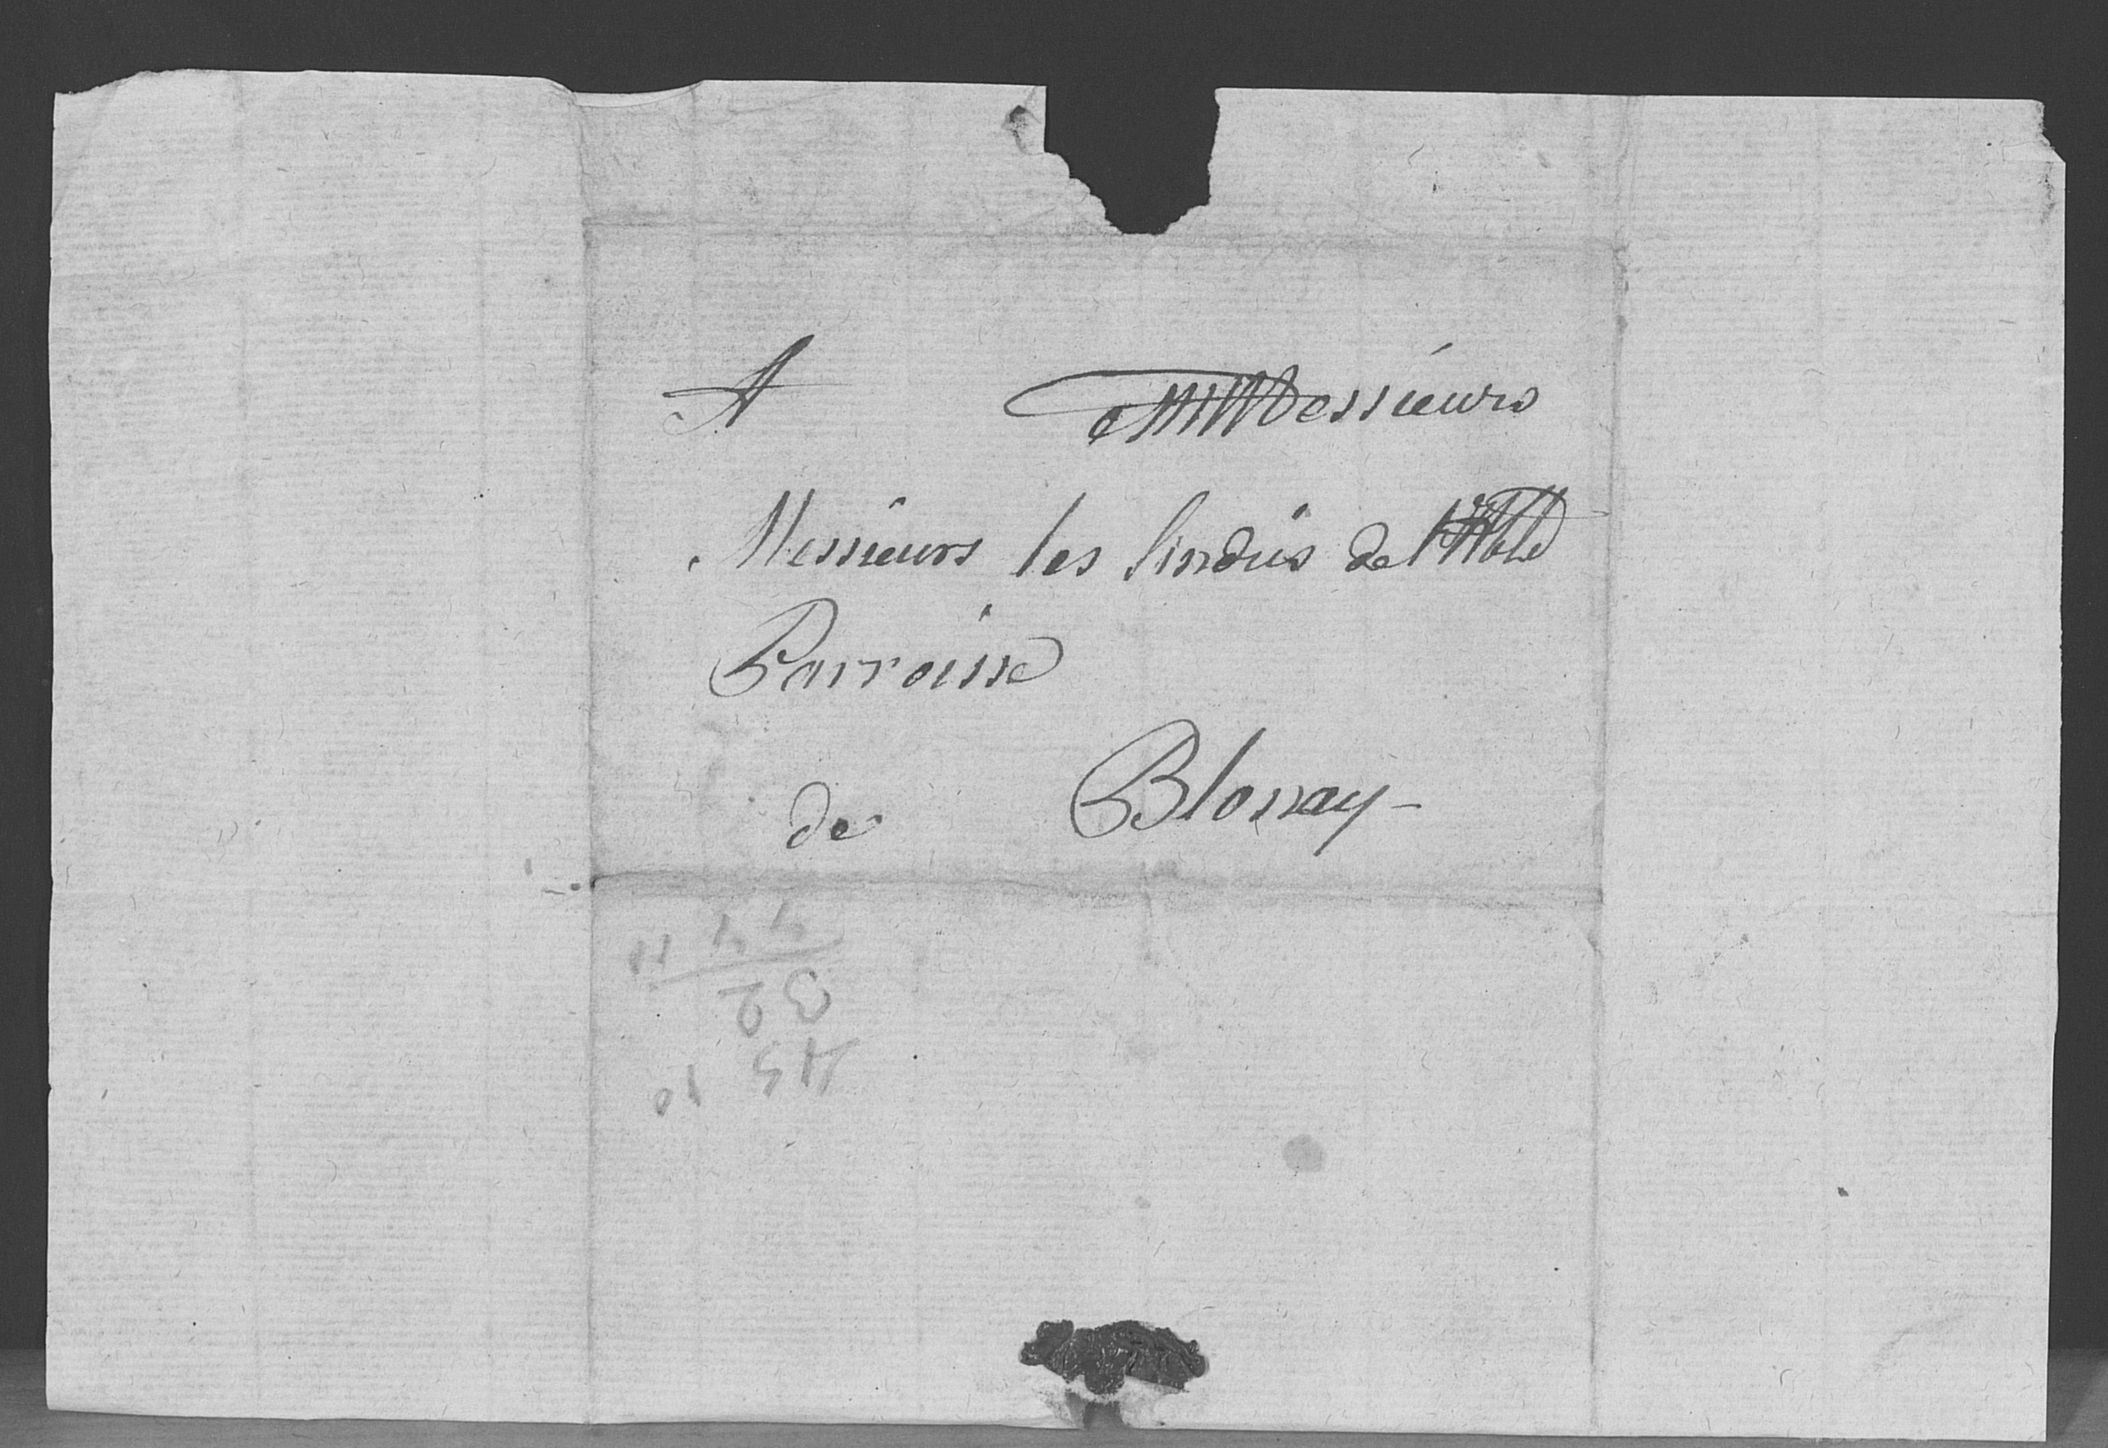 A Messieurs
Messieurs les sindics de l'H.ble
Parroisse
de Blonay